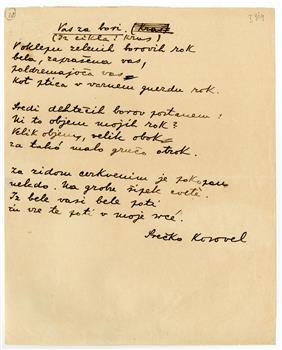 Vas za bori. (Kras)
(Iz cikla: Kras)
V oklepu zelenih borovih rok
bela, zaprašena vas,
poldremajoča vas
kot ptica v varnem gnezdu rok.
Sredi dehtečih borov postanem:
Ni to objem mojih rok?
Velik objem, velik obok
za tako malo gručo otrok.
Za zidom cerkvenim je pokopan
nekdo. Na grobu šipek cveti.
Iz bele vasi bele poti
in vse te poti v moje srcé.
Srečko Kosovel